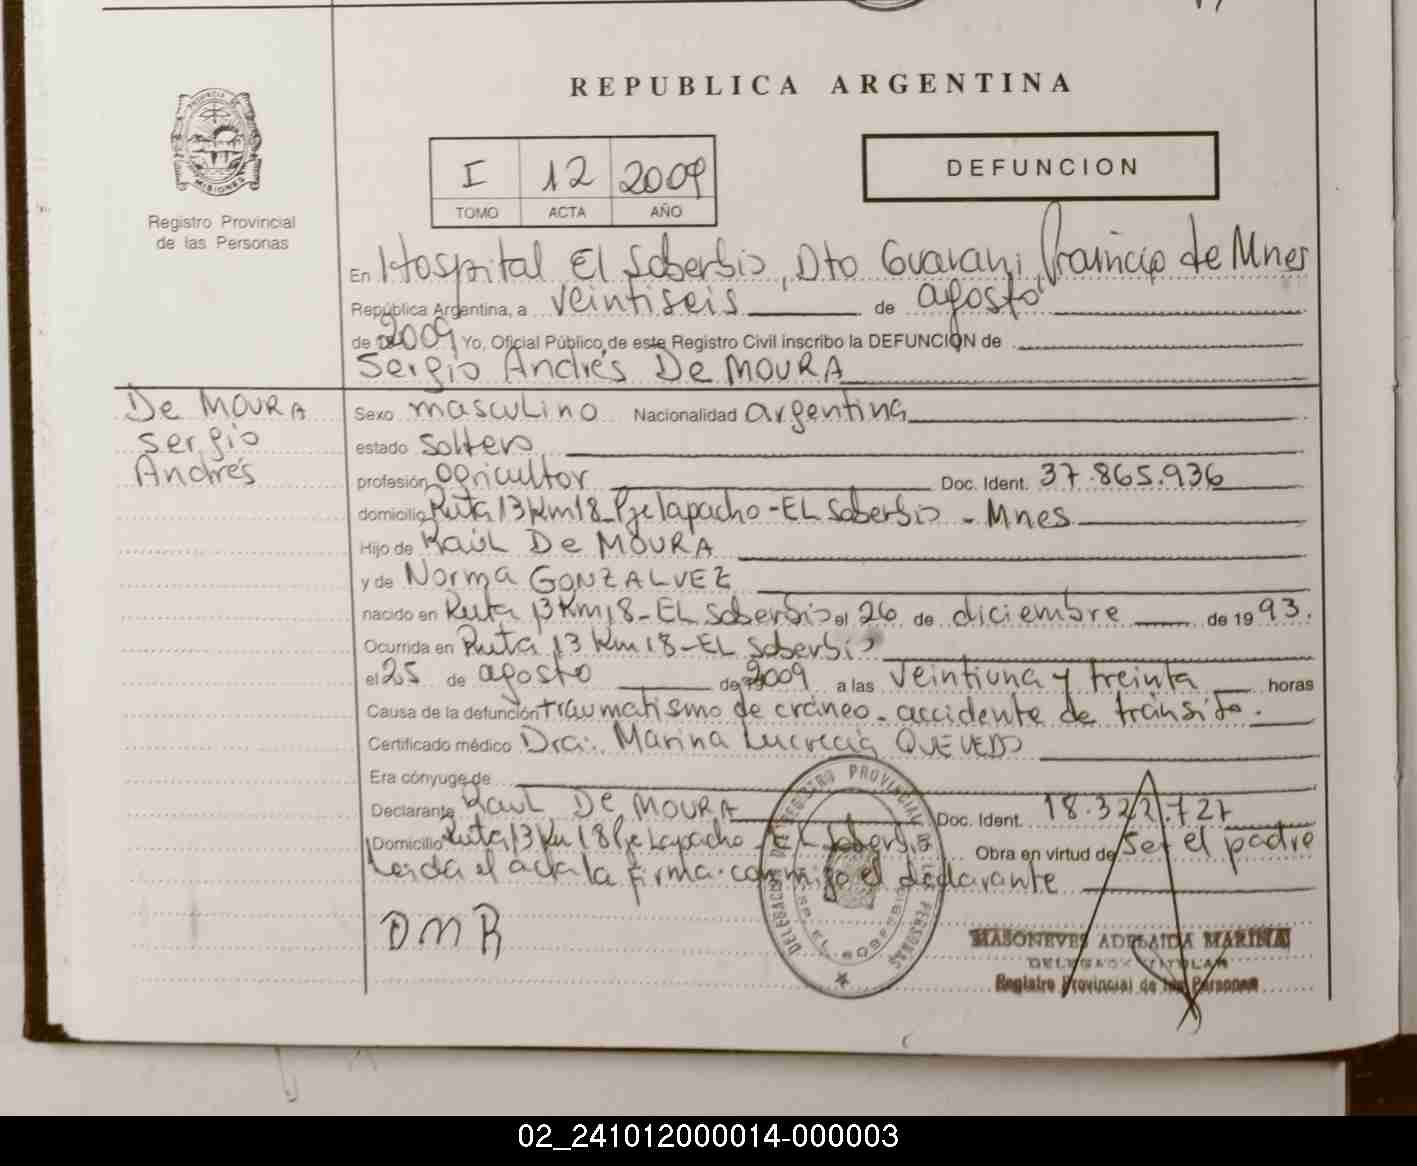 REPUBLICA ARGENTINA
PROVINCIA DE
MISIONES
Registro Provincial
de las Personas
I 12 2009
TOMO ACTA AÑO
DEFUNCION
En Hospital El Soberbio, Dto Guarani, Provincia de Mnes
República Argentina, a veintiseis de agosto
de 2009 Yo, Oficial Público de este Registro Civil inscribo la DEFUNCIÓN de
Sergio Andrés De MOURA
De MOURA
Sergio
Andrés
Sexo masculino Nacionalidad argentina
estado soltero
profesión agricultor Doc. Ident. 37.865.936
domicilio Ruta 13 Km 18 Pje Lapacho - EL Soberbio - Mnes
Hijo de Raúl De MOURA
y de Norma GONZALVEZ
nacido en Ruta 13 Km 18 - EL Soberbio el 26 de diciembre de 1993.
Ocurrida en Ruta 13 Km 18 - EL Soberbio
el 25 de agosto de 2009 a las veintiuna y treinta horas
Causa de la defunción traumatismo de cráneo - accidente de tránsito.
Certificado médico Dra: Marina Lucrecia QUEVEDO
Era cónyuge de
Declarante Raul De MOURA Doc. Ident. 18.322.727
Domicilio Ruta 13 Km 18 Pje Lapacho - EL Soberbio Obra en virtud de ser el padre
Leída el acta la firma conmigo el declarante
DMR
DELEGACION DEL REGISTRO PROVINCIAL DE LAS PERSONAS
EL SOBERBIO
MASONEVES ADELAIDA MARINA
DELEGADA TITULAR
Registro Provincial de las Personas
02_241012000014-000003